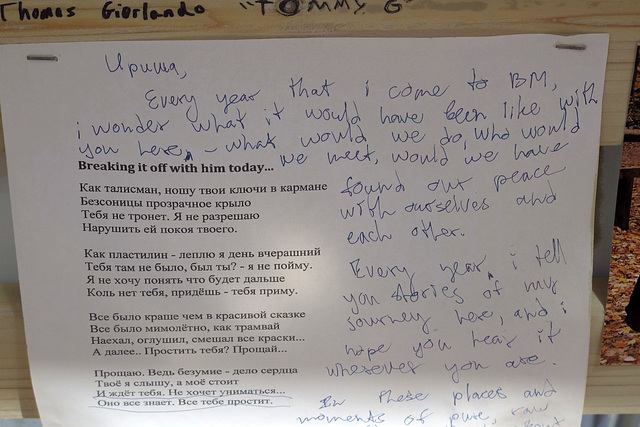 Thomas Giorlando "TOMMY G"
Ириша,
Every year that i come to BM,
i wonder what it would have been like with
you here, - what would we do, who would
we meet, would we have
found our peace
with ourselves and
each other.
Every year, i tell
you stories of my
journey here, and i
hope you hear it
wherever you are.
In these places and
moments of pure, raw
Breaking it off with him today...
Как талисман, ношу твои ключи в кармане
Безсоницы прозрачное крыло
Тебя не тронет. Я не разрешаю
Нарушить ей покоя твоего.
Как пластилин - леплю я день вчерашний
Тебя там не было, был ты? - я не пойму.
Я не хочу понять что будет дальше
Коль нет тебя, придёшь - тебя приму.
Все было краше чем в красивой сказке
Все было мимолётно, как трамвай
Наехал, оглушил, смешал все краски...
А далее.. Простить тебя? Прощай...
Прощаю. Ведь безумие - дело сердца
Твоё я слышу, а моё стоит
И ждёт тебя. Не хочет униматься...
Оно все знает. Все тебе простит.